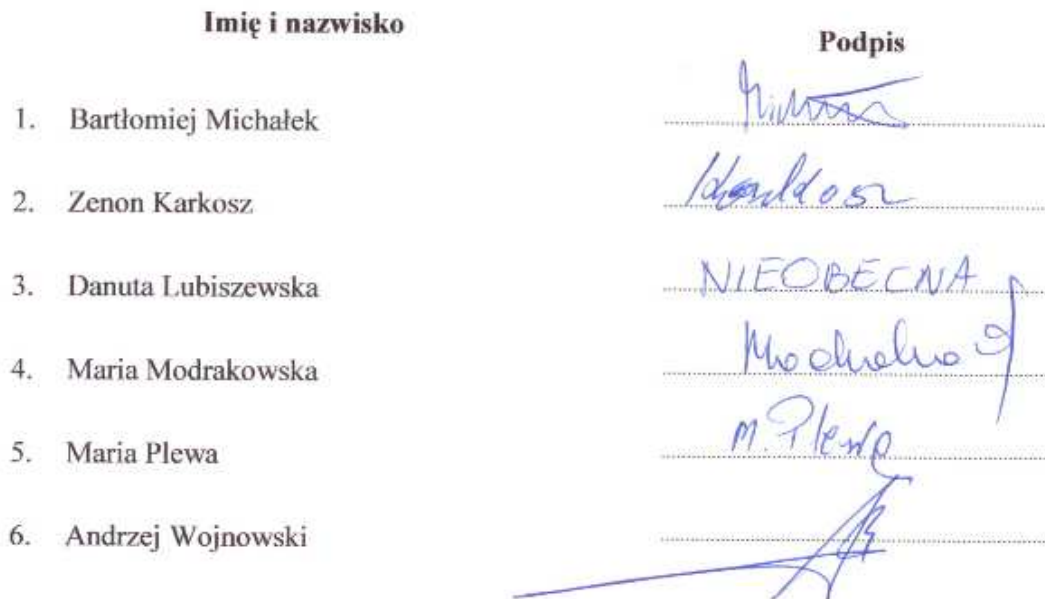 Imię i nazwisko
Podpis
1. Bartłomiej Michałek
2. Zenon Karkosz
3. Danuta Lubiszewska NIEOBECNA
4. Maria Modrakowska
5. Maria Plewa M. Plewa
6. Andrzej Wojnowski